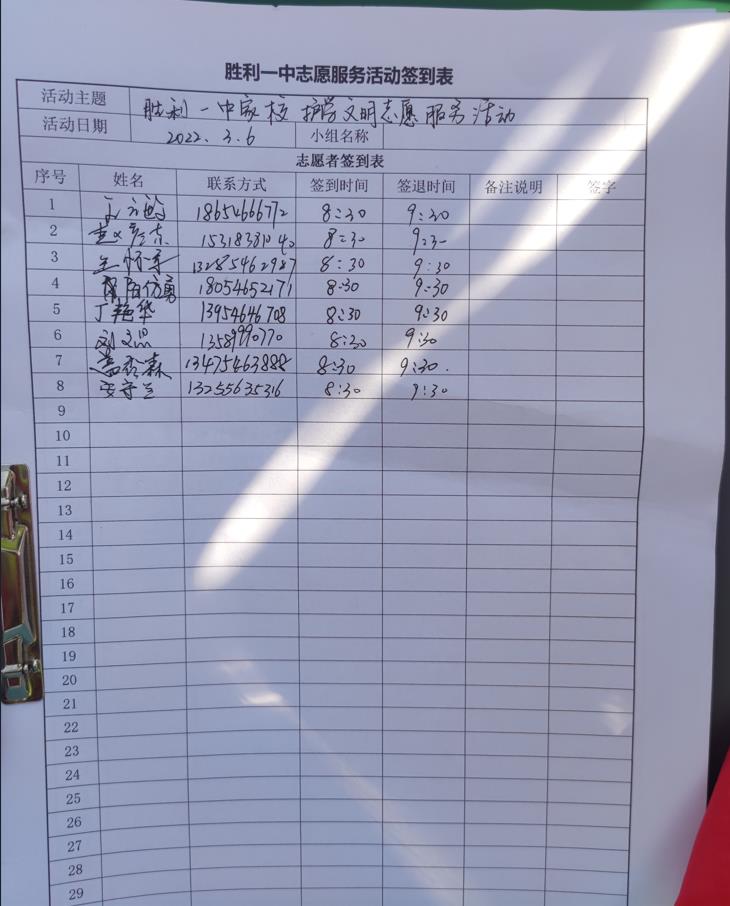 胜利一中志愿服务活动签到表
活动主题 胜利一中家校护学文明志愿服务活动
活动日期 2022.3.6 小组名称
志愿者签到表
序号 姓名 联系方式 签到时间 签退时间 备注说明 签字
1 18654666772 8:30 9:30
2 15318381040 8:30 9:30
3 13285462987 8:30 9:30
4 18054652171 8:30 9:30
5 丁艳华 13954646708 8:30 9:30
6 8:30 9:30
7 13475463888 8:30 9:30.
8 13255635316 8:30 9:30
9
10
11
12
13
14
15
16
17
18
19
20
21
22
23
24
25
26
27
28
29